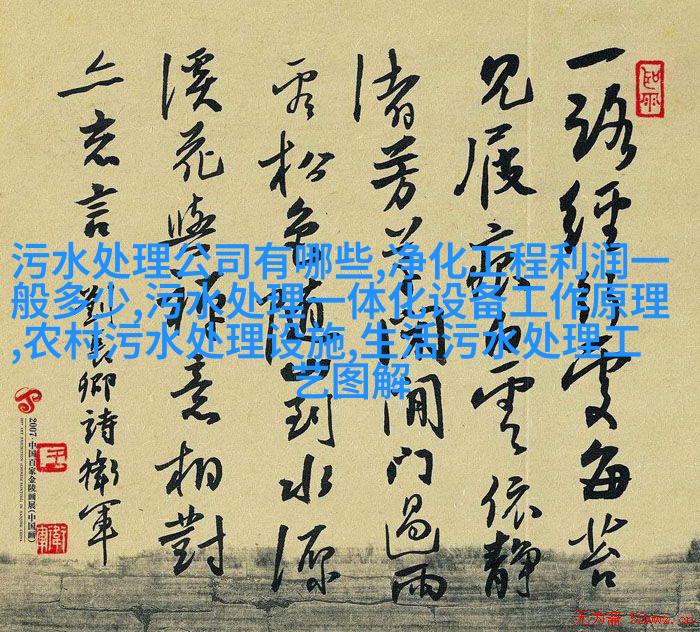 一路經行處每苔
見履痕白雲依靜
渚芳草閉閒門過雨
看松色隨山到水源
溪花與禪意相對
亦忘言
劉長卿詩衛軍
污水处理公司有哪些,净化工程利润一
般多少,污水处理一体化设备工作原理
,农村污水处理设施,生活污水处理工
艺图解
2007·中国百家金陵画展(中国画)
无为斋 52wwz.cn